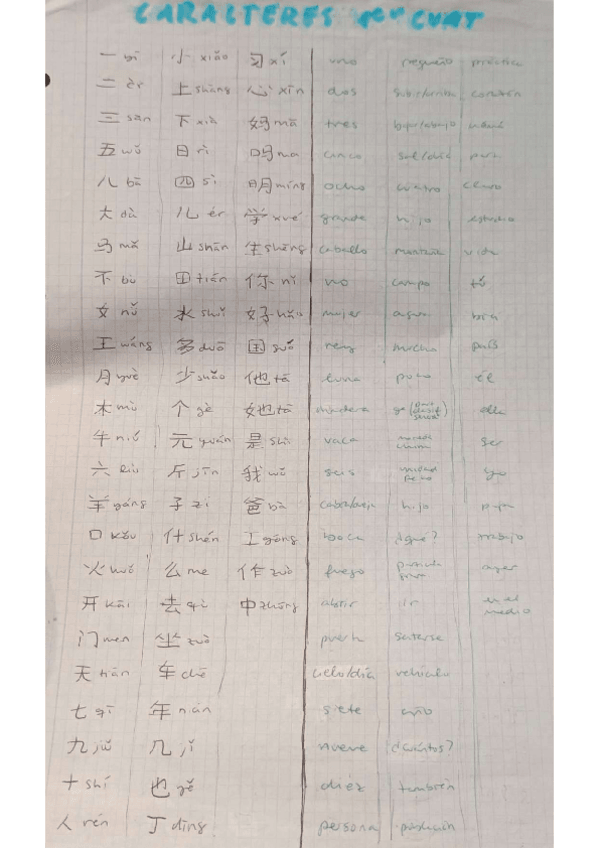 CARACTERES 1er CUAT
一 yī 小 xiǎo 习 xí uno pequeño práctica
二 èr 上 shàng 心 xīn dos subir/arriba corazón
三 sān 下 xià 妈 mā tres bajar/abajo mamá
五 wǔ 日 rì 吗 ma cinco sol/día
八 bā 四 sì 明 míng ocho cuatro claro
大 dà 儿 ér 学 xué grande hijo estudio
马 mǎ 山 shān 生 shēng caballo montaña vida
不 bù 田 tián 你 nǐ no campo tú
女 nǚ 水 shuǐ 好 hǎo mujer agua
王 wáng 多 duō 国 guó rey mucho país
月 yuè 少 shǎo 他 tā luna poco él
木 mù 个 gè 她 tā madera ella
牛 niú 元 yuán 是 shì vaca ser
六 liù 斤 jīn 我 wǒ seis unidad peso yo
羊 yáng 子 zi 爸 bà cabra/oveja hijo papa
口 kǒu 什 shén 工 gōng boca ¿qué? trabajo
火 huǒ 么 me 作 zuò fuego
开 kāi 去 qù 中 zhōng abrir ir en el medio
门 men 坐 zuò sentarse
天 tiān 车 chē cielo/día vehículo
七 qī 年 nián siete año
九 jiǔ 几 jǐ nueve ¿cuántos?
十 shí 也 yě diez también
人 rén 丁 dīng persona